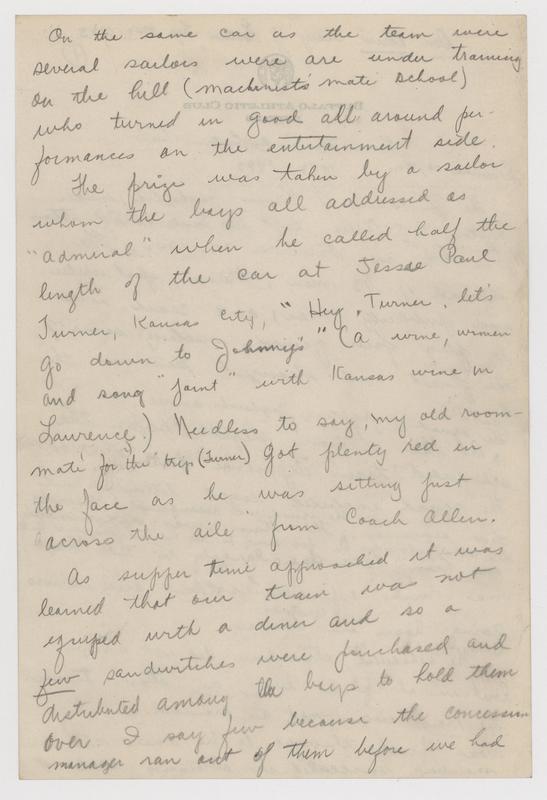 On the same car as the team were
several sailors were are under training
on the hill (machinists' mate school)
who turned in good all around per-
formances on the entertainment side.
The prize was taken by a sailor
whom the boys all addressed as
"admiral" when he called half the
length of the car at Jessae Paul
Turner, Kansas City, "Hey, Turner, let's
go down to Johnny's" (a wine, women
and song "joint" with Kansas wine in
Lawrence.) Needless to say, my old room-
mate for the trip (Turner) got plenty red in
the face as he was sitting just
across the aile from Coach Allen.
As supper time approached it was
learned that our train was not
equiped with a diner and so a
few sandwitches were purchased and
distributed among the boys to hold them
over. I say few because the concession
manager ran out of them before we had